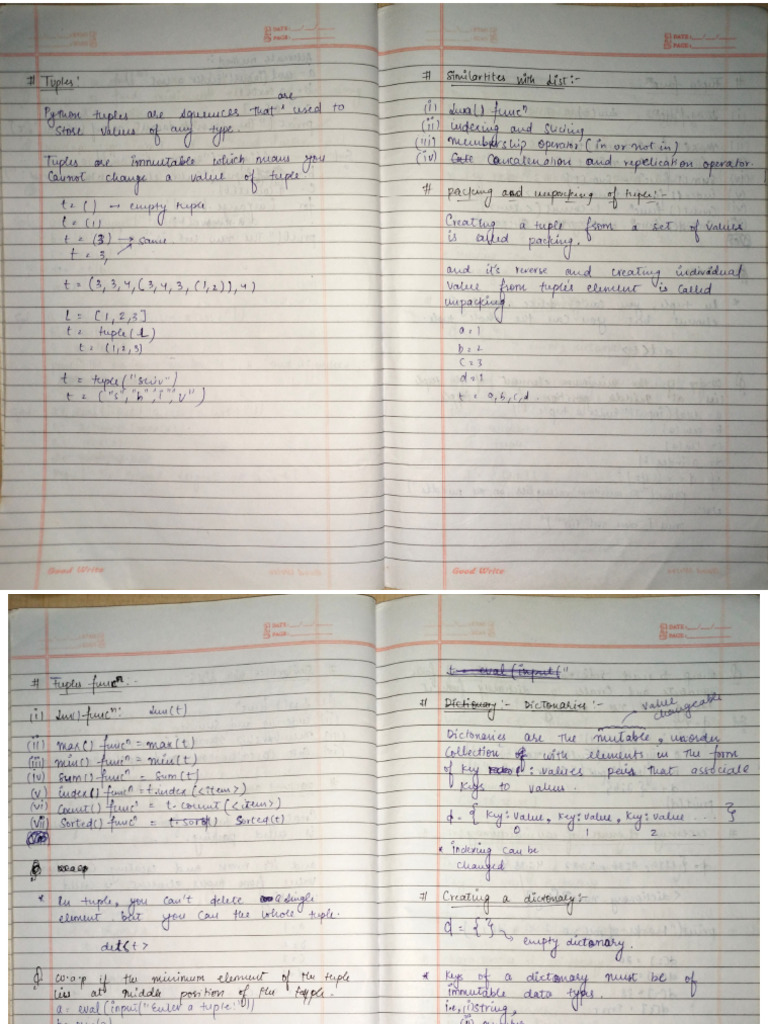 DATE:
PAGE:
# Tuples:
are
Python tuples are squences that used to
store values of any type.
Tuples are immutable which means you
Cannot change a value of tuple
t = ( ) → empty tuple
t = (3) → same
t = 3,
t = (3, 3, 4, (3, 4, 3, (1, 2)), 4)
L = [1, 2, 3]
t = tuple(L)
t = (1, 2, 3)
Good Write
DATE:
PAGE:
# Similartites with List:-
(i) func^n
(ii) indexing and slicing
(iii) membership operator (in or not in)
(iv) and replication operator.
# packing and unpacking of tuple:-
Creating a tuple from a set of values
is called packing.
and it's reverse and creating individual
value from tuple's element is called
unpacking.
a = 1
b = 2
c = 3
d = 1
t = a, b, c, d
Good Write
DATE:
PAGE:
# Tuples func^n:-
(ii) max() func^n = max(t)
(iii) min() func^n = min(t)
(iv) sum() func^n = sum(t)
(v) index() func^n = t.index(<item>)
(vi) count() func^n = t.count(<item>)
(vii) Sorted() func^n = Sorted(t)
* In tuple, you can't delete a single
element but you can the whole tuple.
w.a.p if the minimum element of the tuple
is at middle position of the
a = eval(input("Enter a tuple:"))
DATE:
PAGE:
t = eval(input("
# Dictionary:- Dictonaries:-
value
changeable
Dictonaries are the mutable, unorder
Collection of with elements in the form
of Key : values pairs that associate
Keys to values.
d = { Key: value, Key: value, Key: value .... }
0 1 2
* indexing can be
changed
# Creating a dictonary:-
d = { } empty dictonary.
* Keys of a dictonary must be of
immutable data types.
i.e, (i) string,